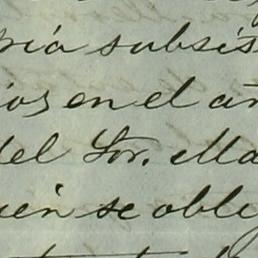 ria subsis
ios en el añ
del Sor. Ma
uien se oblig